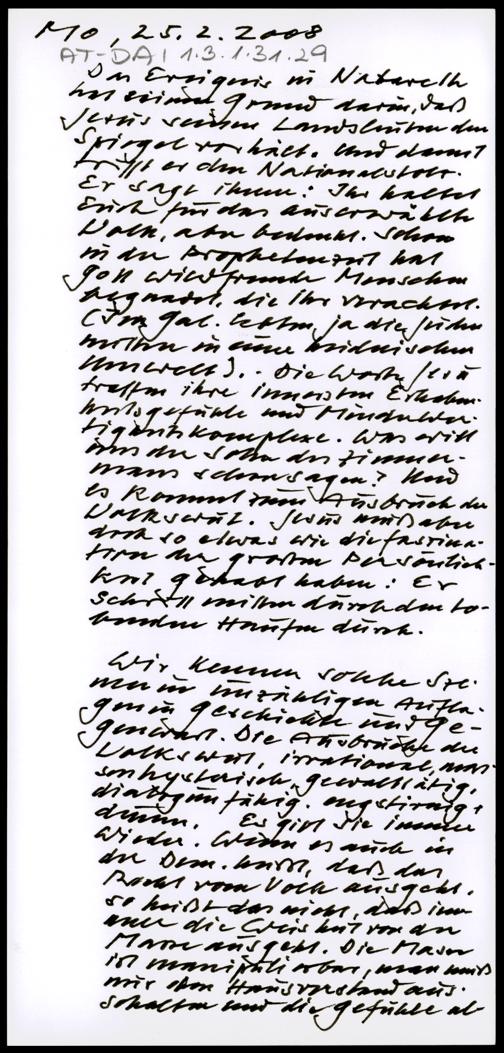 Mo, 25.2.2008
AT-DAI 1.3.1.31.29
Das Ereignis in Nazareth
hat seinen Grund darin, daß
Jesus seinen Landsleuten den
Spiegel vorhält. Und damit
trifft er den Nationalstolz.
Er sagt ihnen: Ihr haltet
Euch für das auserwählte
Volk, aber bedenkt. Schon
in der Prophetenzeit hat
Gott wildfremde Menschen
begnadet, die Ihr verachtet.
(Im Gal. lebten ja die Juden
mitten in einer heidnischen
Umwelt). Die Worte Jesu
treffen ihre innersten Erhaben-
heitsgefühle und Minderwer-
tigkeitskomplexe. Was will
uns der Sohn des Zimmer-
manns schon sagen? Und
es kommt zum Ausbruch der
Volkswut. Jesus muß aber
doch so etwas wie die Faszina-
tion der großen Persönlich-
keit gehabt haben: Er
schritt mitten durch den to-
benden Haufen durch.
Wir kennen solche Sze-
nen in unzähligen Aufla-
gen in Geschichte und Ge-
genwart. Die Ausbrüche der
Volkswut, irrational, mas-
senhysterisch, gewalttätig,
dialogunfähig, engstirnig,
dumm. Es gibt sie immer
wieder. Wenn es auch in
der Dem. heißt, daß das
Recht vom Volk ausgeht,
so heißt das nicht, daß im-
mer die Weisheit von der
Masse ausgeht. Die Masse
ist manipulierbar, man muß
nur den Hausverstand aus-
schalten und die Gefühle al-